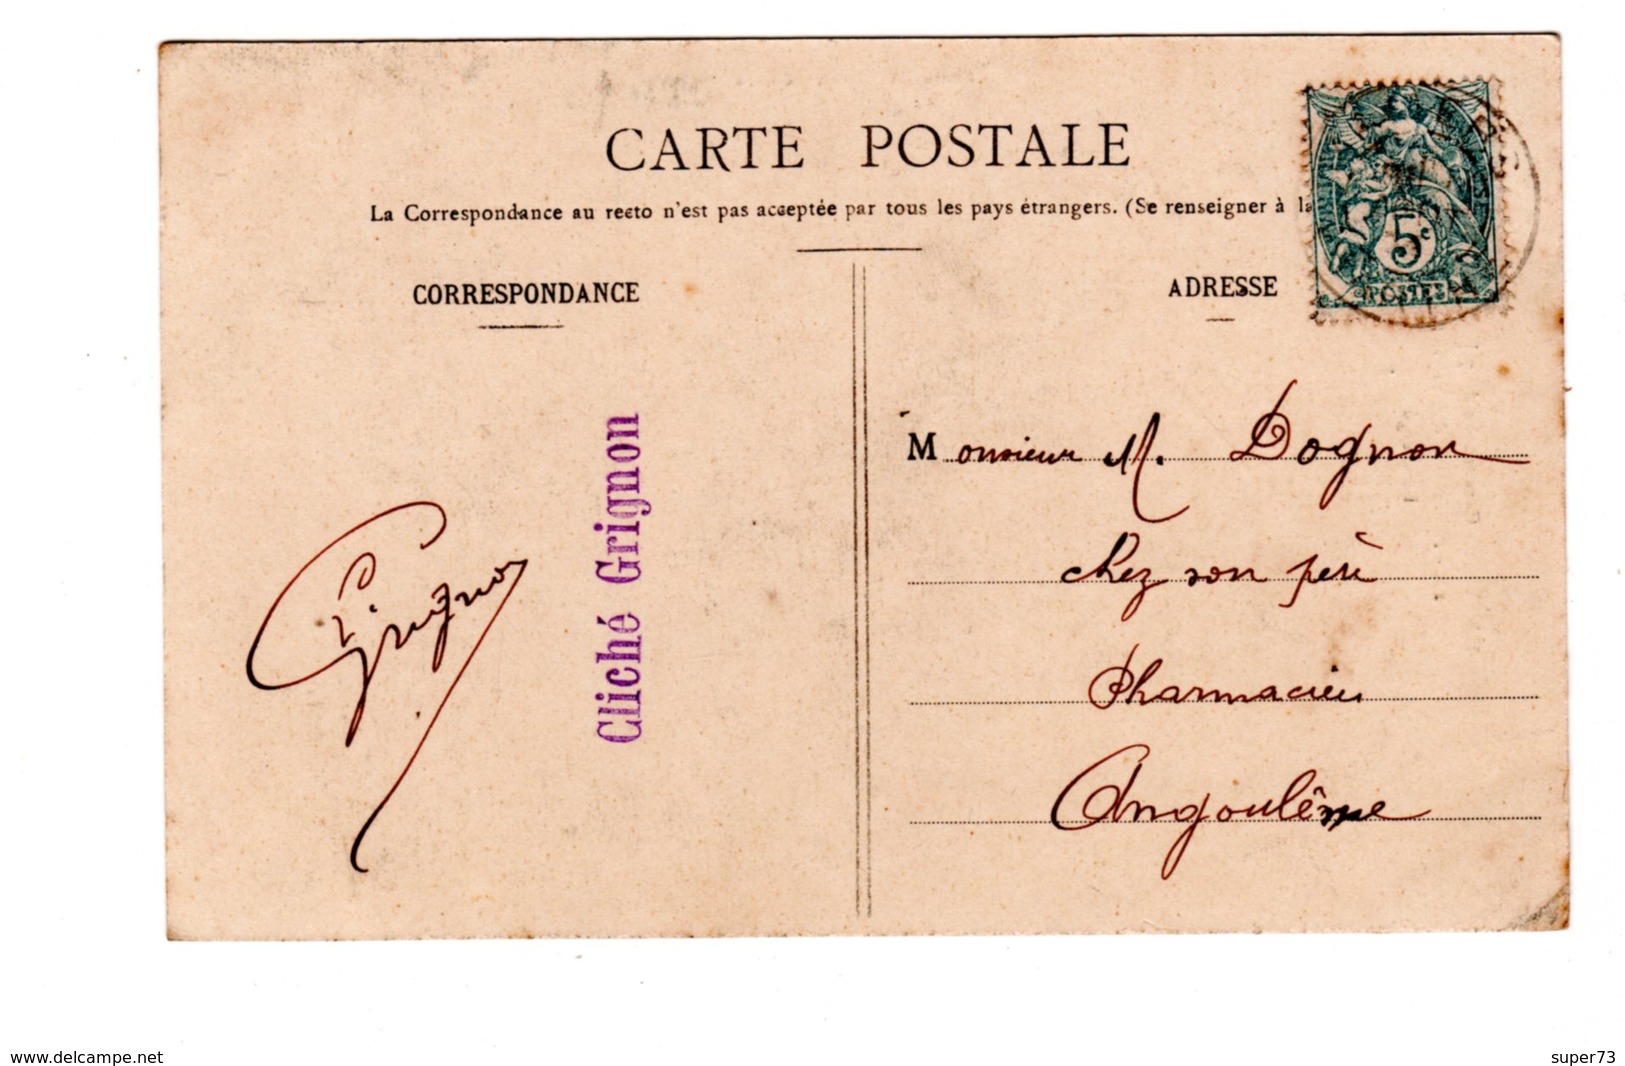 CARTE POSTALE
La Correspondance au recto n'est pas acceptée par tous les pays étrangers. (Se renseigner à la
CORRESPONDANCE
ADRESSE
5c
POSTES
Monsieur M. Dognon
chez son père
Pharmacien
Angoulême
Cliché Grignon
Grignon
www.delcampe.net
super73